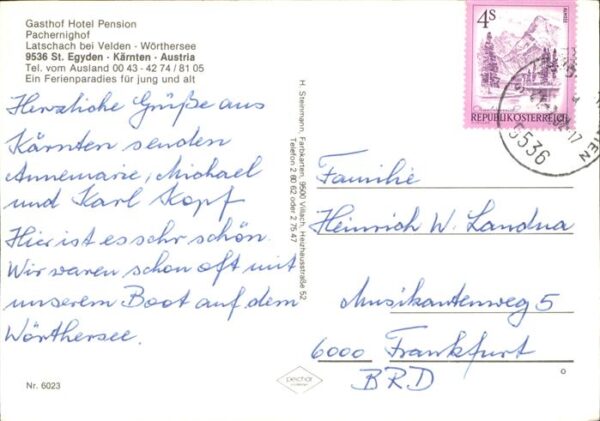 Gasthof Hotel Pension
Pachernighof
Latschach bei Velden · Wörthersee
9536 St. Egyden · Kärnten · Austria
Tel. vom Ausland 00 43 - 42 74 / 81 05
Ein Ferienparadies für jung und alt
Herzliche Grüße aus
Kärnten senden
Annemarie, Michael
und Karl Kopf
Hier ist es sehr schön.
Wir waren schon oft mit
unserem Boot auf dem
Wörthersee.
Nr. 6023
H. Steinmann, Farbkarten, 9500 Villach, Heizhausstraße 52
Telefon 2 80 62 oder 2 75 47
4S
ALMSEE
REPUBLIK ÖSTERREICH
9536
Familie
Heinrich W. Landua
Musikantenweg 5
6000 Frankfurt
BRD